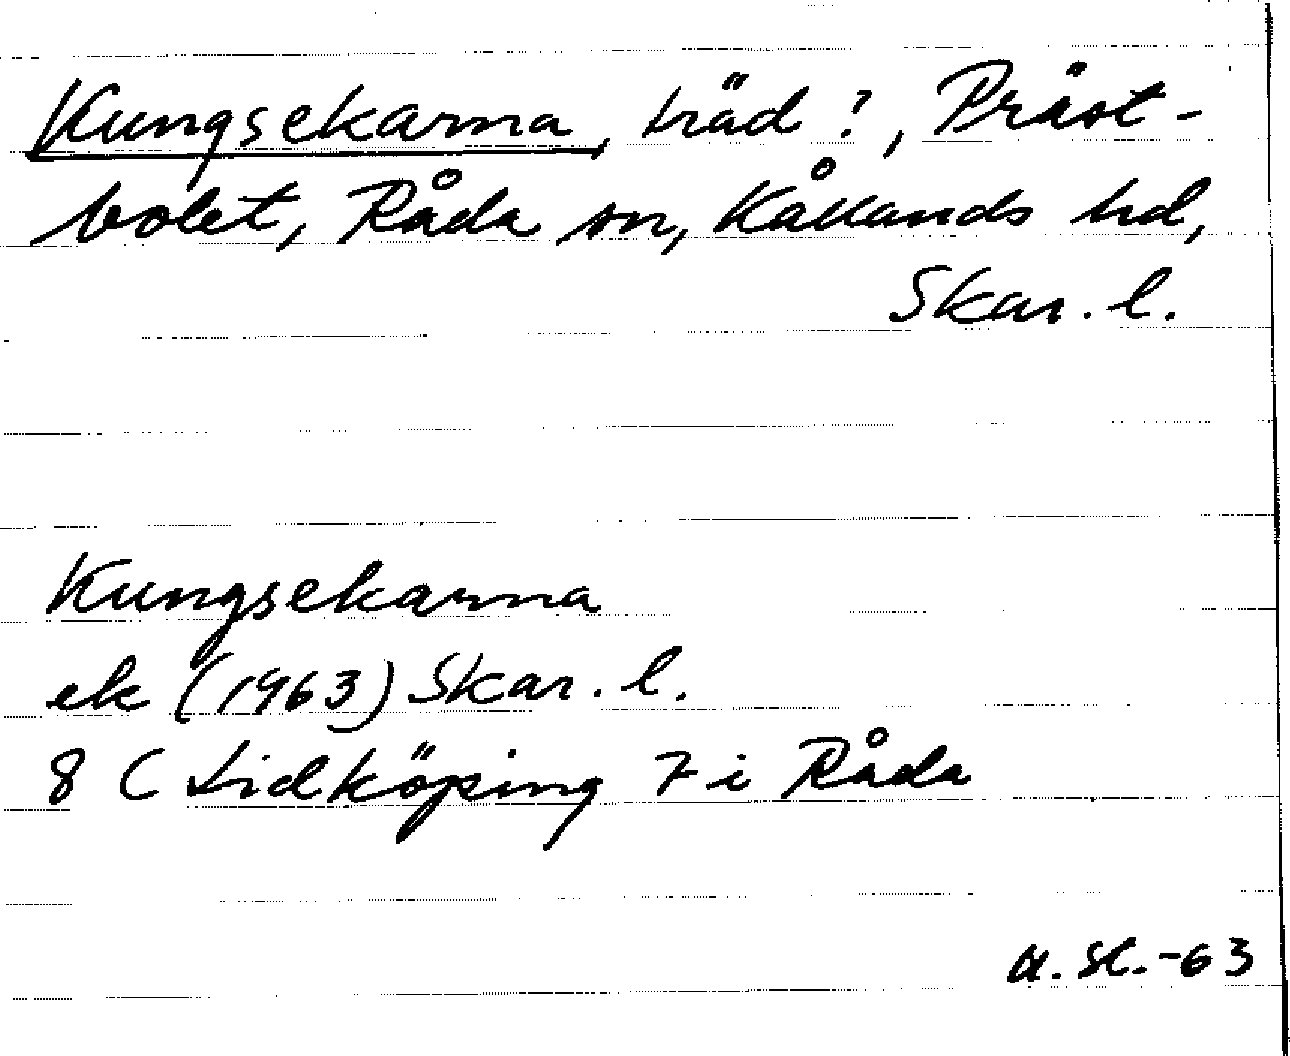 Kungsekarna, träd?, Präst-
bolet, Råda sn, Kållands hd,
Skar. l.
Kungsekarna
ek (1963) Skar. l.
8 C Lidköping 7 i Råda
-63